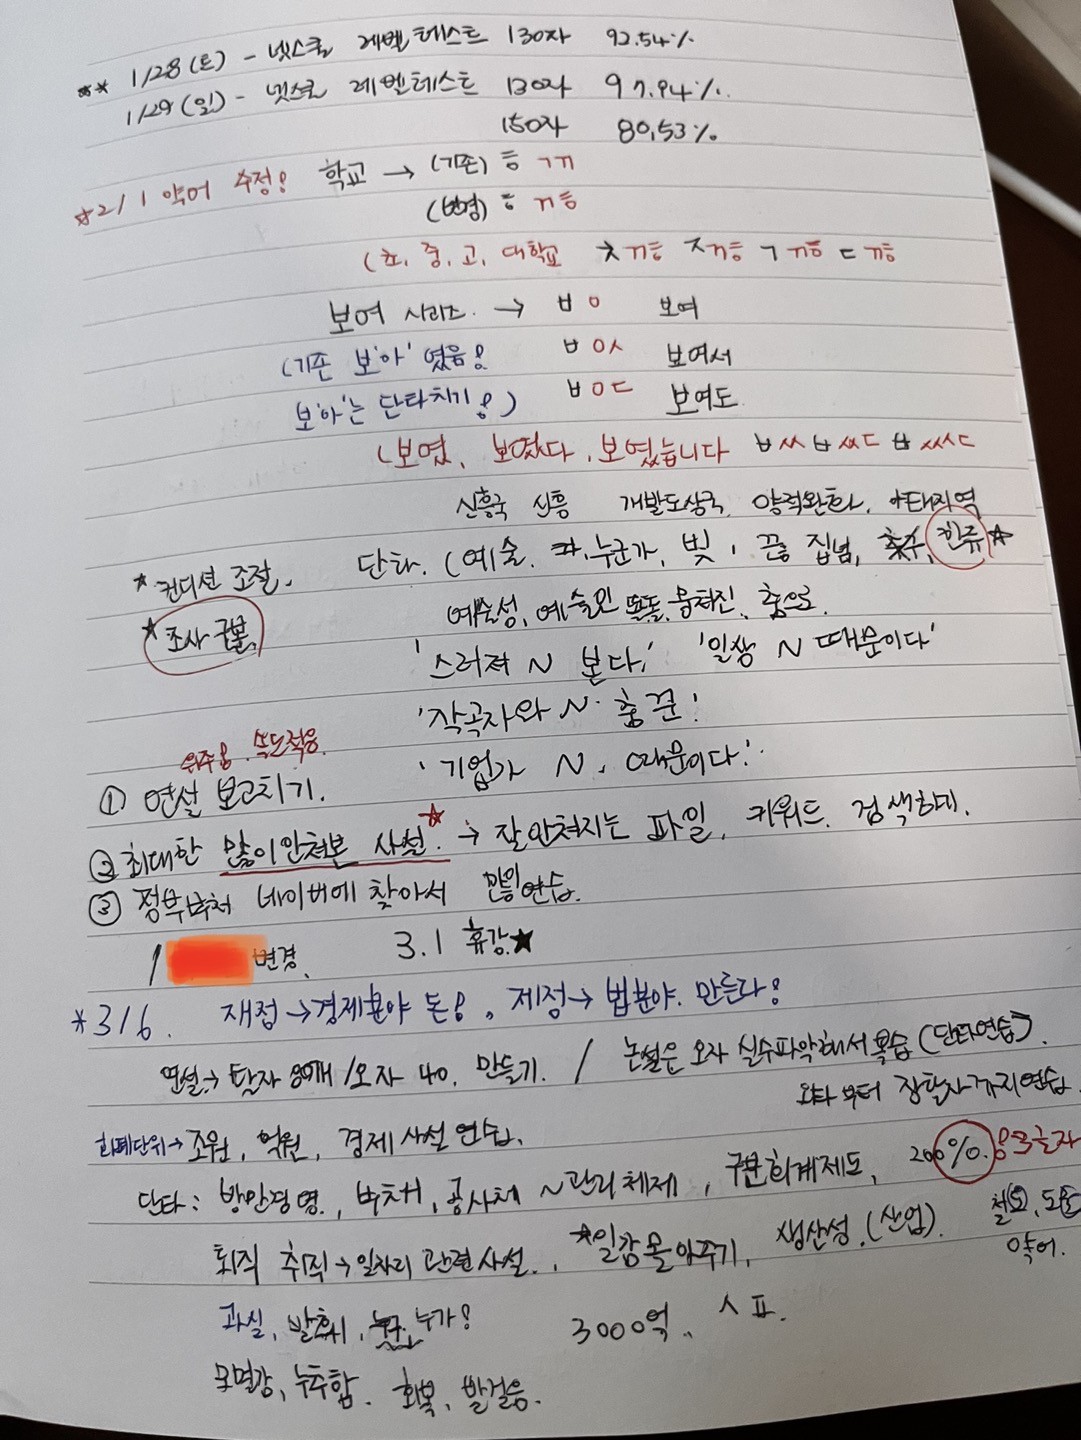 ** 1/28 (토) - 넷스쿨 레벨테스트 130자 92.54%
1/29 (일) - 넷스쿨 레벨테스트 130자 97.94%.
150자 80.53%
*2/1 약어 수정! 학교 → (기존) ㅎ ㄱㄲ
(변경) ㅎ ㄲㅎ
(초, 중, 고, 대학교 ㅊㄲㅎ ㅈㄲㅎ ㄱㄲㅎ ㄷㄲㅎ
보여 시리즈. → ㅂㅇ 보여
(기존 보'아' 였음! ㅂㅇㅅ 보여서
보'아'는 단타치기!) ㅂㅇㄷ 보여도
(보였, 보였다, 보였습니다 ㅂㅆ ㅂㅆㄷ ㅂㅆㅅㄷ
신흥국 신흥 개발도상국, 양적완화, 아태지역
*컨디션 조절. 단타. (예술, 누군가, 빚, 끊 집념, 한류*
*조사 구분. 예술성, 예술인 똘똘 뭉쳐진, 춤으로.
'스러져 N 본다.' '일쌍 N 때문이다'
'작곡자와 N. 춤꾼!
위주!, 속도적응. '기업가 N, 때문이다.'
① 연설 보고치기.
② 최대한 많이안쳐본 사설.* → 잘안쳐지는 파일, 키워드, 검색하기.
③ 정부부처 네이버에 찾아서 많이연습.
/ 변경. 3.1 휴강★
*3/6. 재정→경제분야 돈!, 제정→ 법분야. 만든다!
연설→ 탈자 80개/오자 40. 만들기. / 논설은 오자 실수파악해서 복습(단타연습).
오타부터 장탈자 유지연습.
화폐단위→ 조원, 억원, 경제 사설 연습.
단타: 방만경영, 부채, 공사채 N관리체제, 구분회계제도, 200%. 응크글자
퇴직 취직→일자리 관련사설., *일감몰아주기, 생산성.(산업). 철도, 도로
약어.
과실, 발휘시, 누가! 3000억, ㅅㅍ.
모멸감, 누추함. 회복, 발걸음.